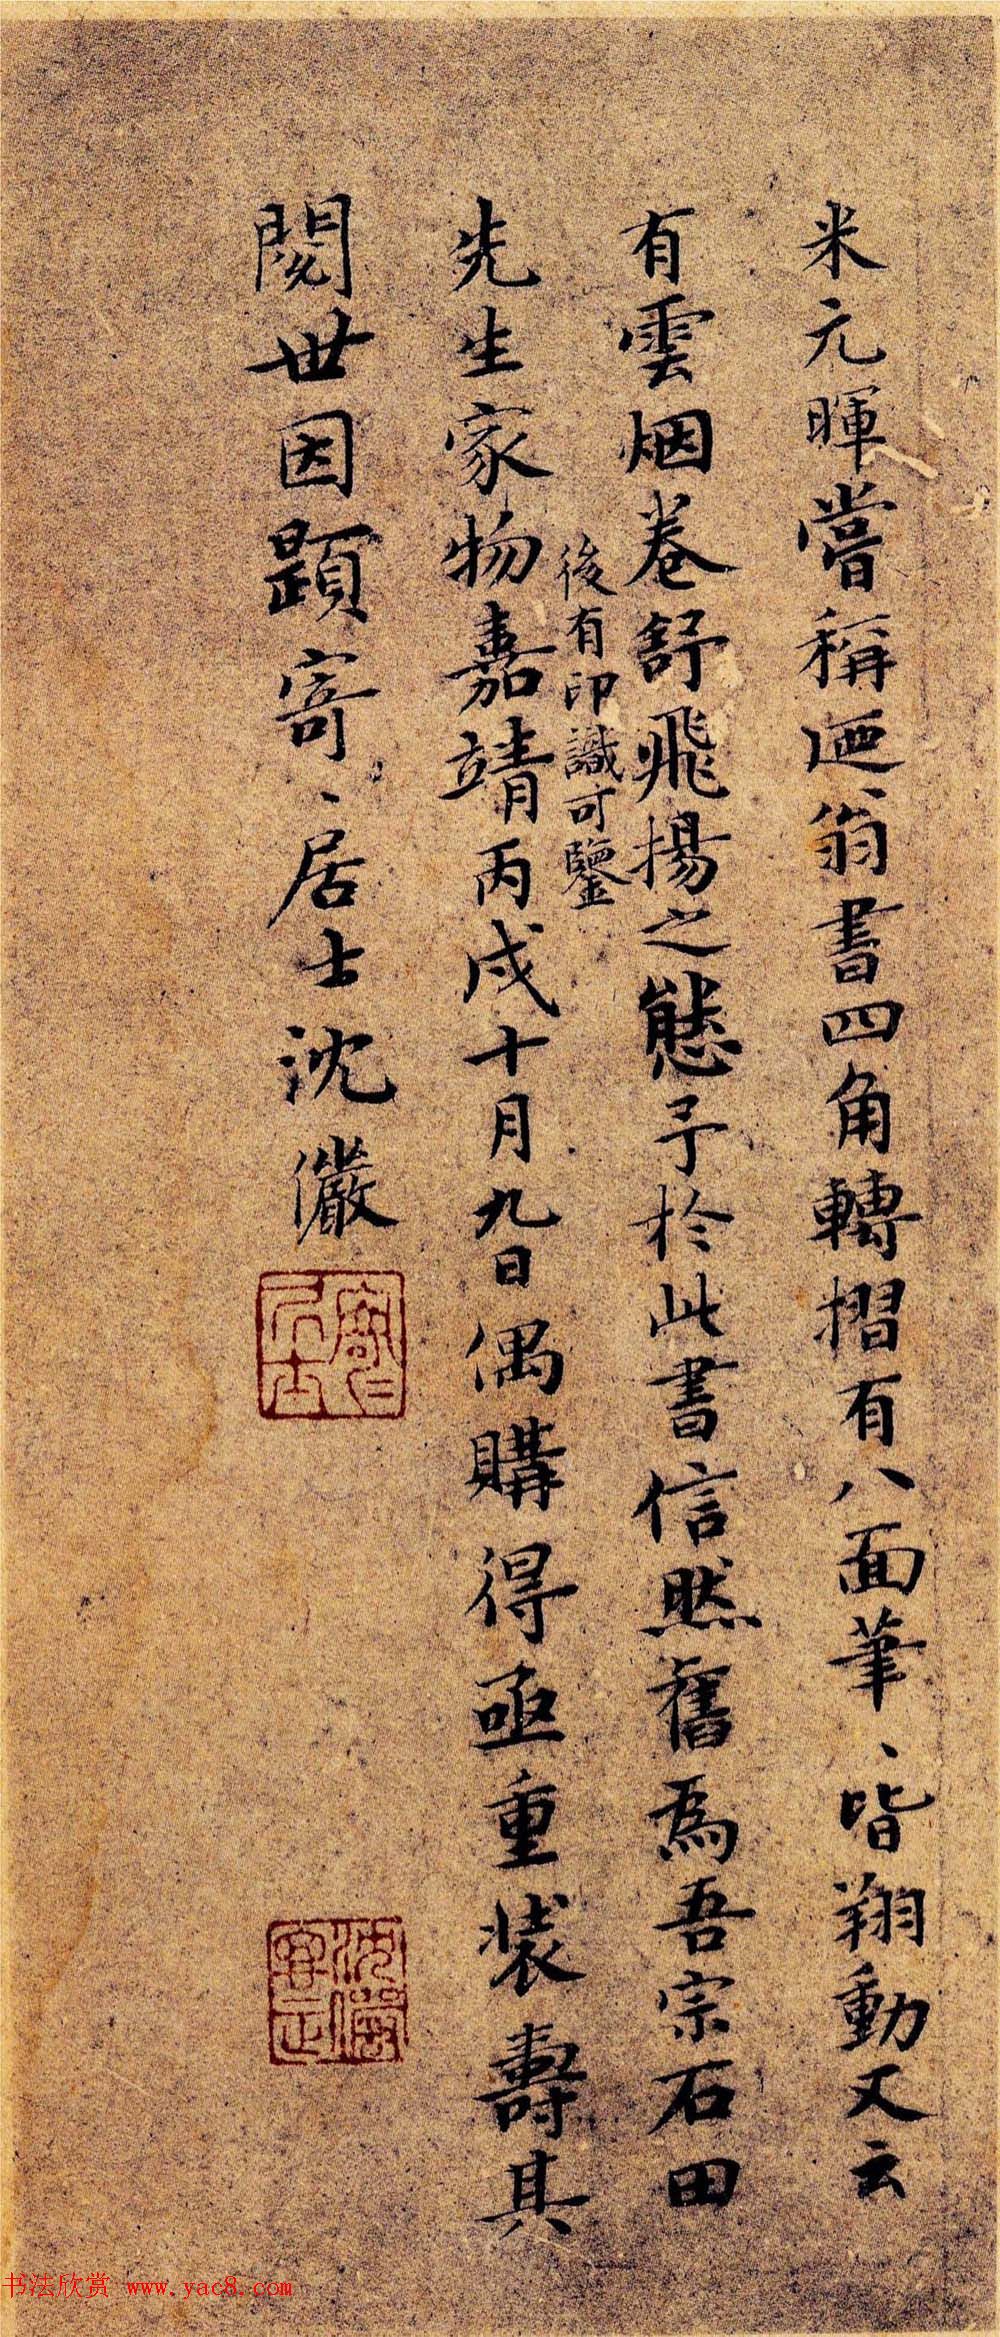 米元暉嘗稱迺翁書四角轉摺有八面筆、皆翔動又云
有雲烟卷舒飛揚之態予於此書信然舊為吾宗石田
後有印識可鑒
先生家物嘉靖丙戌十月九日偶購得亟重裝壽其
閱世因題寄、居士沈儼
寄、居士
书法欣赏 www.yac8.com